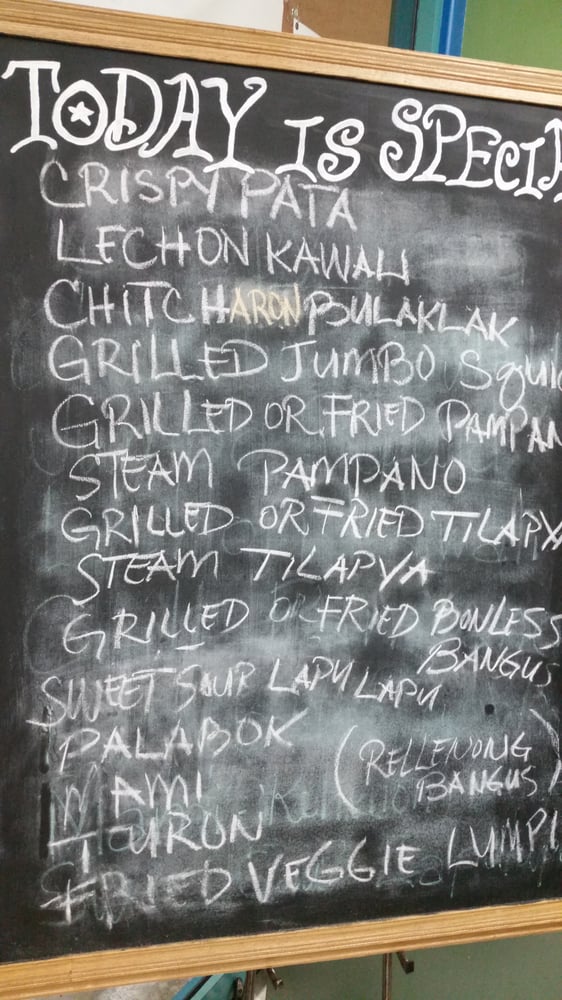 TODAY IS SPECIA
CRISPY PATA
LECHON KAWALI
CHITCHARON BULAKLAK
GRILLED JUMBO Squi
GRILLED OR FRIED PAMPAN
STEAM PAMPANO
GRILLED OR FRIED TILAPYA
STEAM TILAPYA
GRILLED OR FRIED BONLESS
BANGUS
SWEET SOUR LAPU LAPU
PALABOK
(RELLENONG
BANGUS)
MAMI
TOURON
FRIED VEGGIE LUMPI